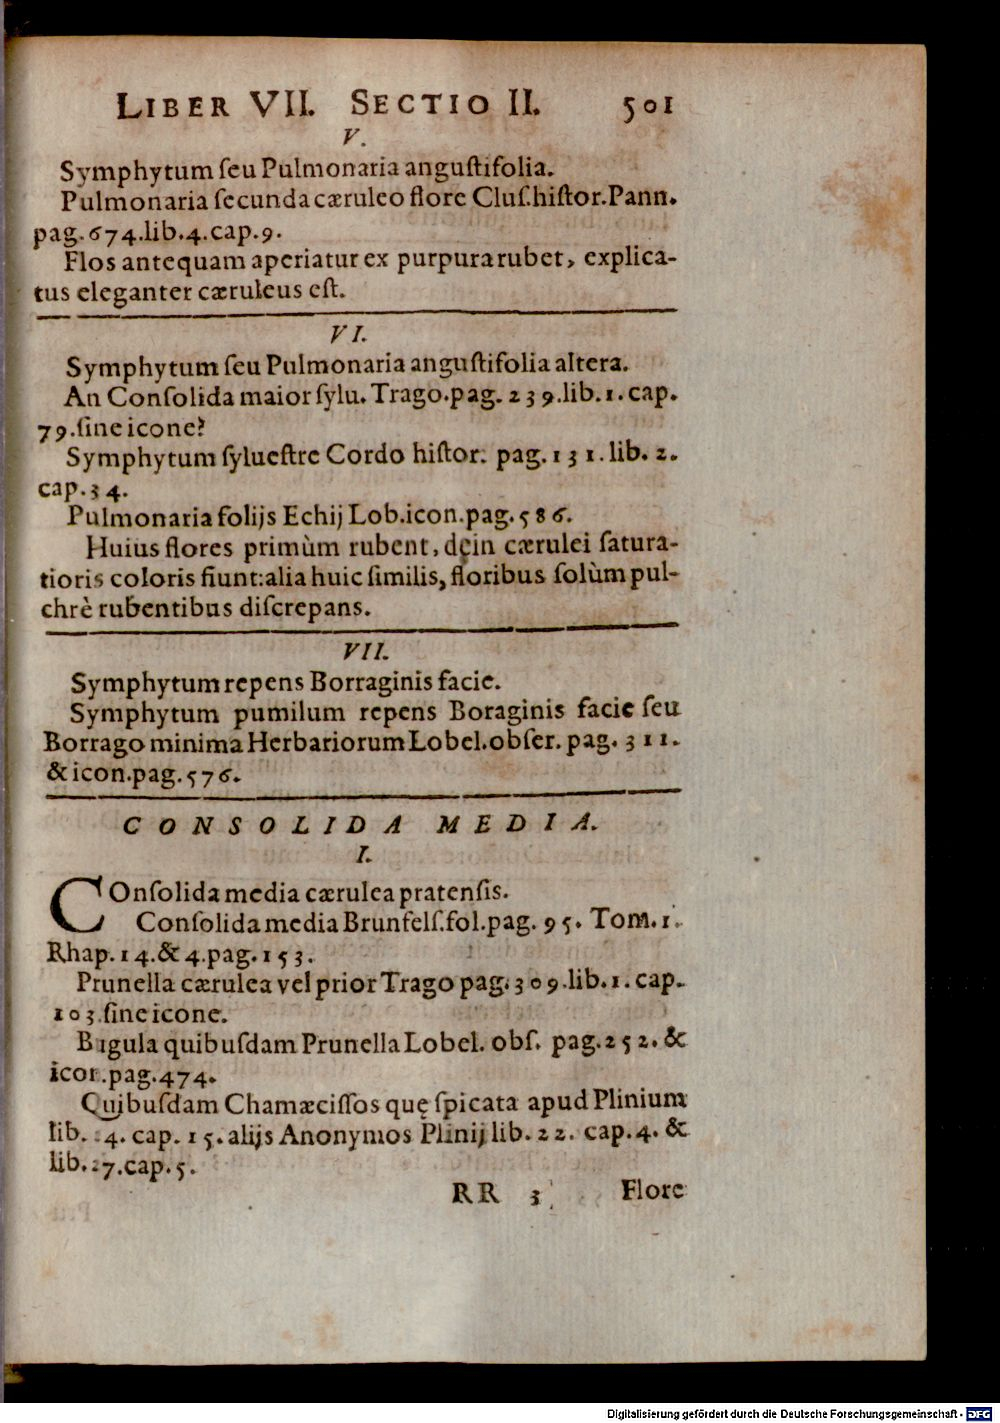 LIBER VII. SECTIO II. 501
V.
Symphytum ſeu Pulmonaria anguſtifolia.
Pulmonaria ſecunda cæruleo flore Cluſ.hiſtor.Pann.
pag.674.lib.4.cap.9.
Flos antequam aperiatur ex purpura rubet, explica-
tus eleganter cæruleus eſt.
VI.
Symphytum ſeu Pulmonaria anguſtifolia altera.
An Conſolida maior ſylu. Trago.pag. 239.lib.1.cap.
79.ſine icone?
Symphytum ſylueſtre Cordo hiſtor. pag.131.lib. 2.
cap.34.
Pulmonaria folijs Echij Lob.icon.pag.586.
Huius flores primùm rubent, dein cærulei ſatura-
tioris coloris fiunt:alia huic ſimilis, floribus ſolùm pul-
chrè rubentibus diſcrepans.
VII.
Symphytum repens Borraginis facie.
Symphytum pumilum repens Boraginis facie ſeu
Borrago minima Herbariorum Lobel.obſer. pag. 311.
& icon.pag.576.
CONSOLIDA MEDIA.
I.
COnſolida media cærulea pratenſis.
Conſolida media Brunfelſ.fol.pag. 95. Tom.1.
Rhap.14.& 4.pag.153.
Prunella cærulea vel prior Trago pag.309.lib.1.cap.
103.ſine icone.
Bugula quibuſdam Prunella Lobel. obſ. pag.252. &
icon.pag.474.
Quibuſdam Chamæciſſos quę ſpicata apud Plinium
lib. 4. cap. 15. alijs Anonymos Plinij lib. 22. cap.4. &
lib. 7.cap.5.
RR 3 Flore
Digitalisierung gefördert durch die Deutsche Forschungsgemeinschaft - DFG